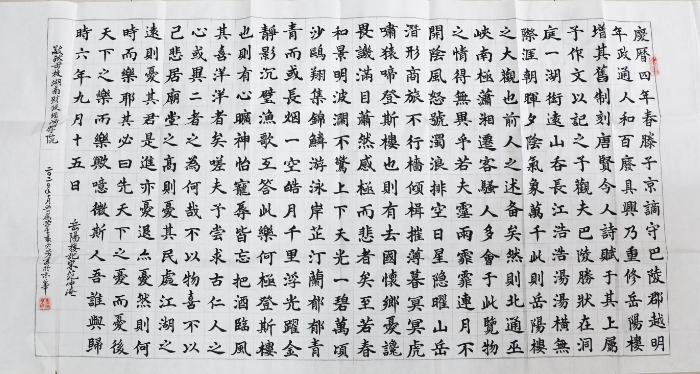 慶曆四年春滕子京謫守巴陵郡越明
年政通人和百廢具興乃重修岳陽樓
增其舊制刻唐賢今人詩賦于其上屬
予作文以記之予觀夫巴陵勝狀在洞
庭一湖銜遠山吞長江浩浩湯湯橫無
際涯朝暉夕陰氣象萬千此則岳陽樓
之大觀也前人之述备矣然則北通巫
峽南極瀟湘遷客騷人多會于此覽物
之情得無異乎若夫霪雨霏霏連月不
開陰風怒號濁浪排空日星隱曜山岳
潛形商旅不行檣傾楫摧薄暮冥冥虎
嘯猿啼登斯樓也則有去國懷鄉憂讒
畏譏滿目蕭然感極而悲者矣至若春
和景明波瀾不驚上下天光一碧萬頃
沙鷗翔集錦鱗游泳岸芷汀蘭郁郁青
青而或長烟一空皓月千里浮光躍金
靜影沉壁漁歌互答此樂何極登斯樓
也則有心曠神怡寵辱皆忘把酒臨風
其喜洋洋者矣嗟夫予嘗求古仁人之
心或異二者之為何哉不以物喜不以
己悲居廟堂之高則憂其民處江湖之
遠則憂其君是進亦憂退亦憂然則何
時而樂耶其必曰先天下之憂而憂後
天下之樂而樂歟噫微斯人吾誰與歸
時六年九月十五日
岳陽樓記范仲淹